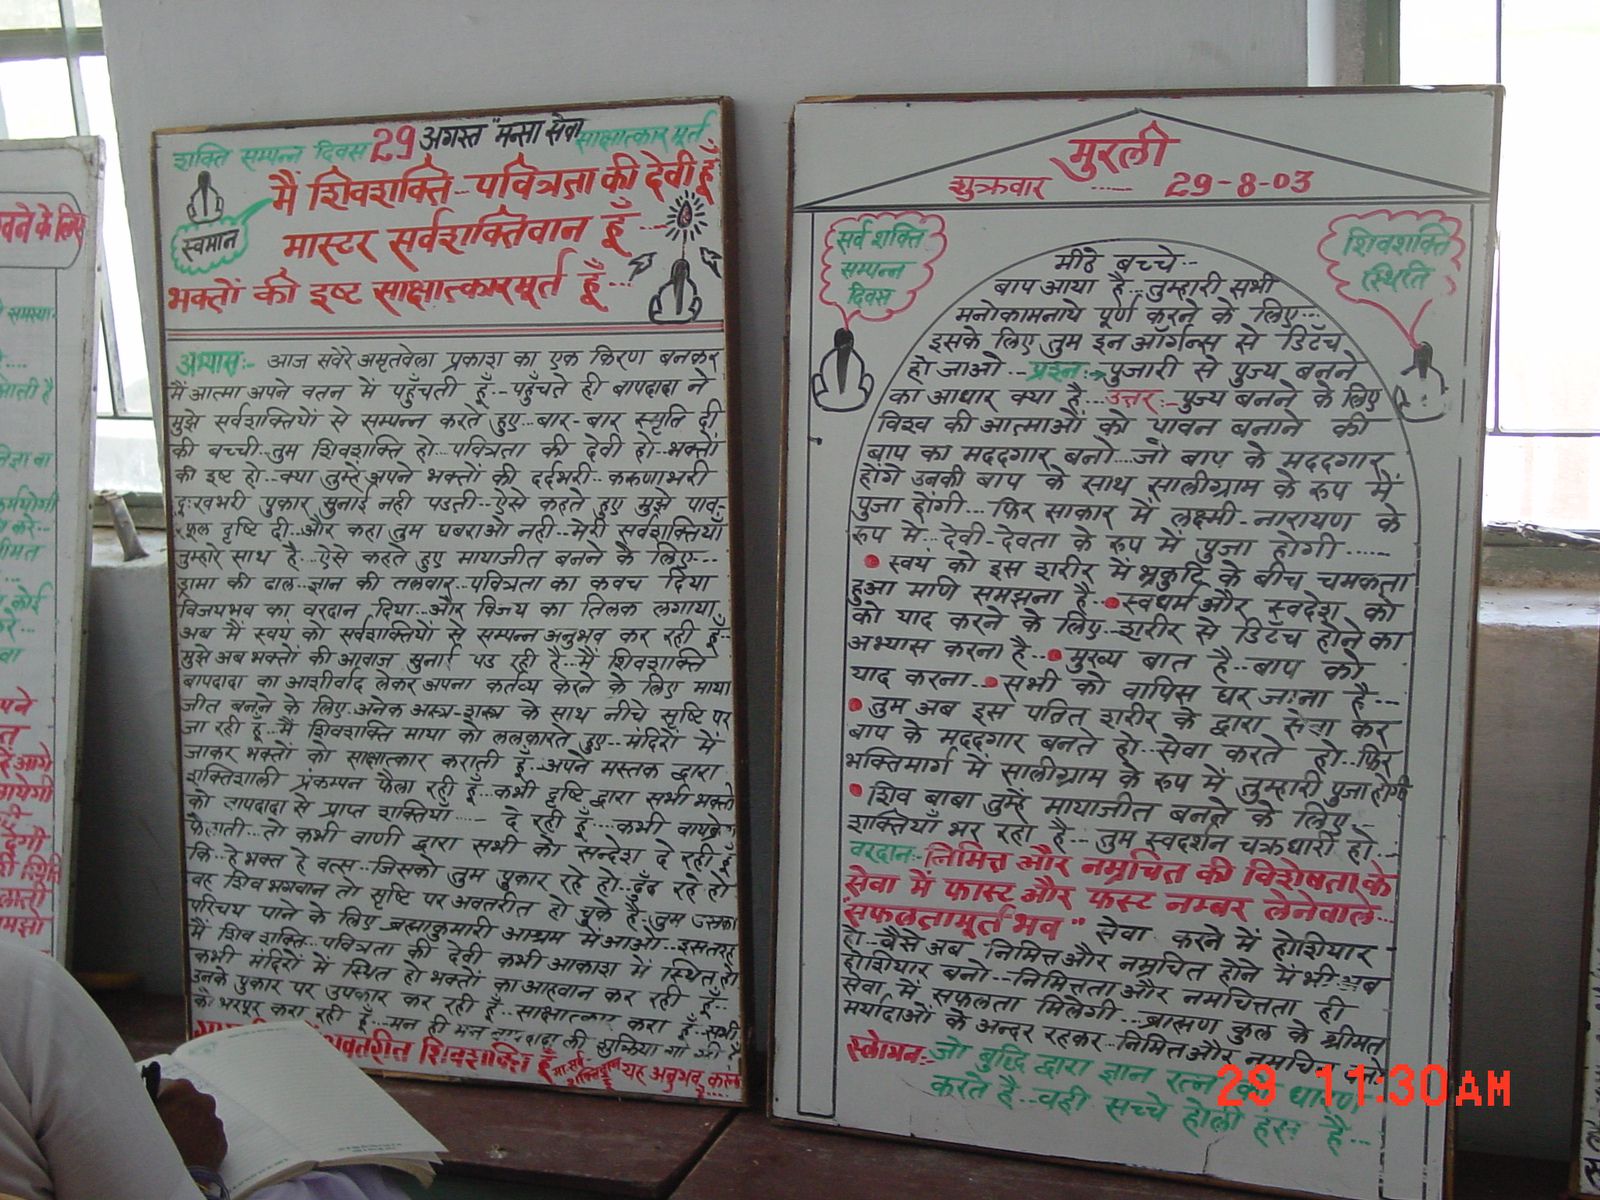 शक्ति सम्पन्न दिवस 29 अगस्त "मन्सा सेवा साक्षात्कार मूर्त
मैं शिवशक्ति... पवित्रता की देवी हूँ
स्वमान
मास्टर सर्वशक्तिवान हूँ...
भक्तों की इष्ट साक्षात्कारमूर्त हूँ...
अभ्यासः- आज सवेरे अमृतवेला प्रकाश का एक किरण बनकर
मैं आत्मा अपने वतन में पहुँचती हूँ.. पहुँचते ही बापदादा ने
मुझे सर्वशक्तियों से सम्पन्न करते हुए...बार-बार स्मृति दी
की बच्ची..तुम शिवशक्ति हो...पवित्रता की देवी हो..भक्तों
की इष्ट हो...क्या तुम्हें अपने भक्तों की दर्दभरी..करुणाभरी
दुःखभरी पुकार सुनाई नही पडती...ऐसे कहते हुए मुझे पावर-
फूल दृष्टि दी...और कहा तुम घबराओ नही..मेरी सर्वशक्तियाँ
तुम्हारे साथ है...ऐसे कहते हुए मायाजीत बनने के लिए...
ड्रामा की ढाल..ज्ञान की तलवार..पवित्रता का कवच दिया
विजयभव का वरदान दिया...और विजय का तिलक लगाया.
अब मैं स्वयं को सर्वशक्तियों से सम्पन्न अनुभव कर रही हूँ..
मुझे अब भक्तों की आवाज सुनाई पड रही है...मैं शिवशक्ति
बापदादा का आशीर्वाद लेकर अपना कर्तव्य करने के लिए माया
जीत बनने के लिए..अनेक अस्त्र-शस्त्र के साथ नीचे सृष्टि पर
जा रही हूँ...मैं शिवशक्ति माया को ललकारते हुए...मंदिरों में
जाकर भक्तों को साक्षात्कार कराती हूँ...अपने मस्तक द्वारा
शक्तिशाली प्रंकम्पन फैला रही हूँ...कभी दृष्टि द्वारा सभी भक्तो
को बापदादा से प्राप्त शक्तियाँ... दे रही हूँ...कभी
फैलाती...तो कभी वाणी द्वारा सभी को सन्देश दे रही हूँ
कि..हे भक्त हे वत्स..जिसको तुम पुकार रहे हो..ढुँढ रहे हो
वह शिव भगवान तो सृष्टि पर अवतरीत हो चुके है..तुम उसका
परिचय पाने के लिए ब्रह्माकुमारी आश्रम में आओ..इसतरह
मैं शिव शक्ति...पवित्रता की देवी कभी आकाश में स्थित हो
कभी मंदिरों में स्थित हो भक्तों का आहवान कर रही हूँ..
उनके पुकार पर उपकार कर रही हूँ..साक्षात्कार करा हूँ..सभी
को भरपूर करा रही हूँ...मन ही मन बापदादा की शुक्रिया गा रही हूँ
अवतरीत शिवशक्ति हूँ यह अनुभव करना है...
मुरली
शुक्रवार ...... 29-8-03
सर्व शक्ति
सम्पन्न
दिवस
शिवशक्ति
स्थिति
मीठे बच्चे...
बाप आया है...तुम्हारी सभी
मनोकामनाये पूर्ण करने के लिए...
इसके लिए तुम इन ऑर्गन्स से डिटॅच
हो जाओ...प्रश्नः→ पुजारी से पुज्य बनने
का आधार क्या है...उत्तरः- पुज्य बनने के लिए
विश्व की आत्माओं को पावन बनाने की
बाप का मददगार बनो...जो बाप के मददगार
होंगे उनकी बाप के साथ सालीग्राम के रुप में
पुजा होंगी...फिर साकार में लक्ष्मी-नारायण के
रुप में...देवी-देवता के रुप में पुजा होगी......
• स्वयं को इस शरीर में भ्रकुटि के बीच चमकता
हुआ मणि समझना है...• स्वधर्म और स्वदेश को
को याद करने के लिए..शरीर से डिटॅच होने का
अभ्यास करना है..• मुख्य बात है..बाप को
याद करना..• सभी को वापिस घर जाना है...
• तुम अब इस पतित शरीर के द्वारा सेवा कर
बाप के मददगार बनते हो...सेवा करते हो..फिर
भक्तिमार्ग में सालीग्राम के रुप में तुम्हारी पुजा होगी
• शिव बाबा तुम्हें मायाजीत बनने के लिए...
शक्तियाँ भर रहा है...तुम स्वदर्शन चक्रधारी हो...
वरदानः- निमित्त और नम्रचित की विशेषता के
सेवा में फास्ट और फस्ट नम्बर लेनेवाले...
सफलतामूर्त भव" सेवा करने में होशियार
हो...वैसे अब निमित्त और नम्रचित होने में भी अब
होशियार बनो...निमित्तता और नम्रचित्तता ही
सेवा में सफलता मिलेगी...ब्राह्मण कुल के श्रीमत
मर्यादाओं के अन्दर रहकर..निमित्त और नम्रचित बनो
स्लोगनः- जो बुद्धि द्वारा ज्ञान रत्न को धारण
करते है...वही सच्चे होली हंस है...
29 11:30AM